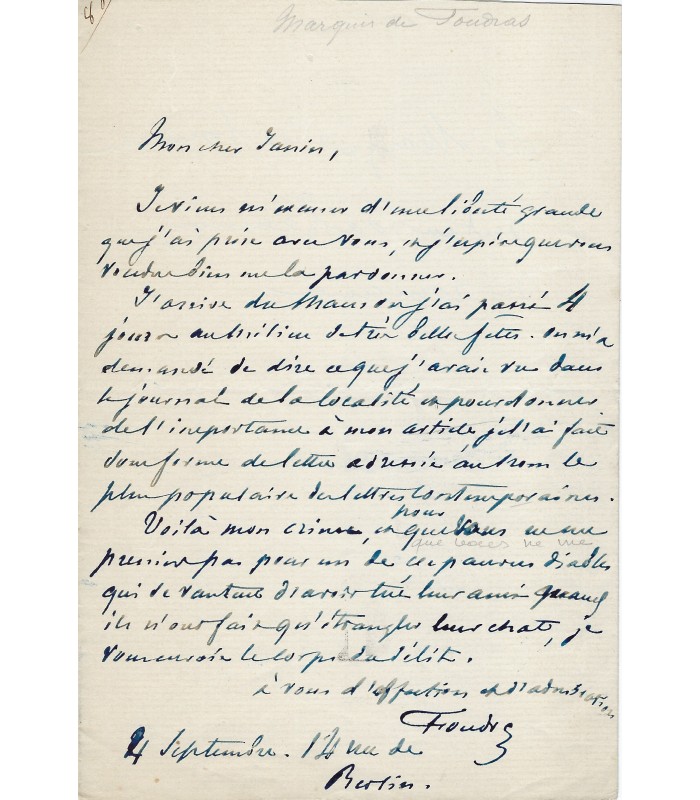 Marquis de Foudras
Mon cher Janin,
Je viens m'excuser d'une liberté grande
que j'ai prise avec vous, et j'espère que vous
voudrez bien me la pardonner.
J'arrive du Mans où j'ai passé 4
jours au milieu de très belles fêtes. On m'a
demandé de dire ce que j'avais vu dans
le journal de la localité et pour donner
de l'importance à mon article je l'ai fait
sous forme de lettre adressée au nom le
plus populaire des lettres contemporaines.
Voilà mon crime, et pour que vous ne me
que vous ne me
preniez pas pour un de ces pauvres diables
qui se vantent d'avoir tué leur ami quand
ils n'ont fait qu'étrangler leur chat, je
vous envoie le corps du délit.
à vous d'affection et d'admiration
Foudras
4 Septembre. 14 rue de
Berlin.